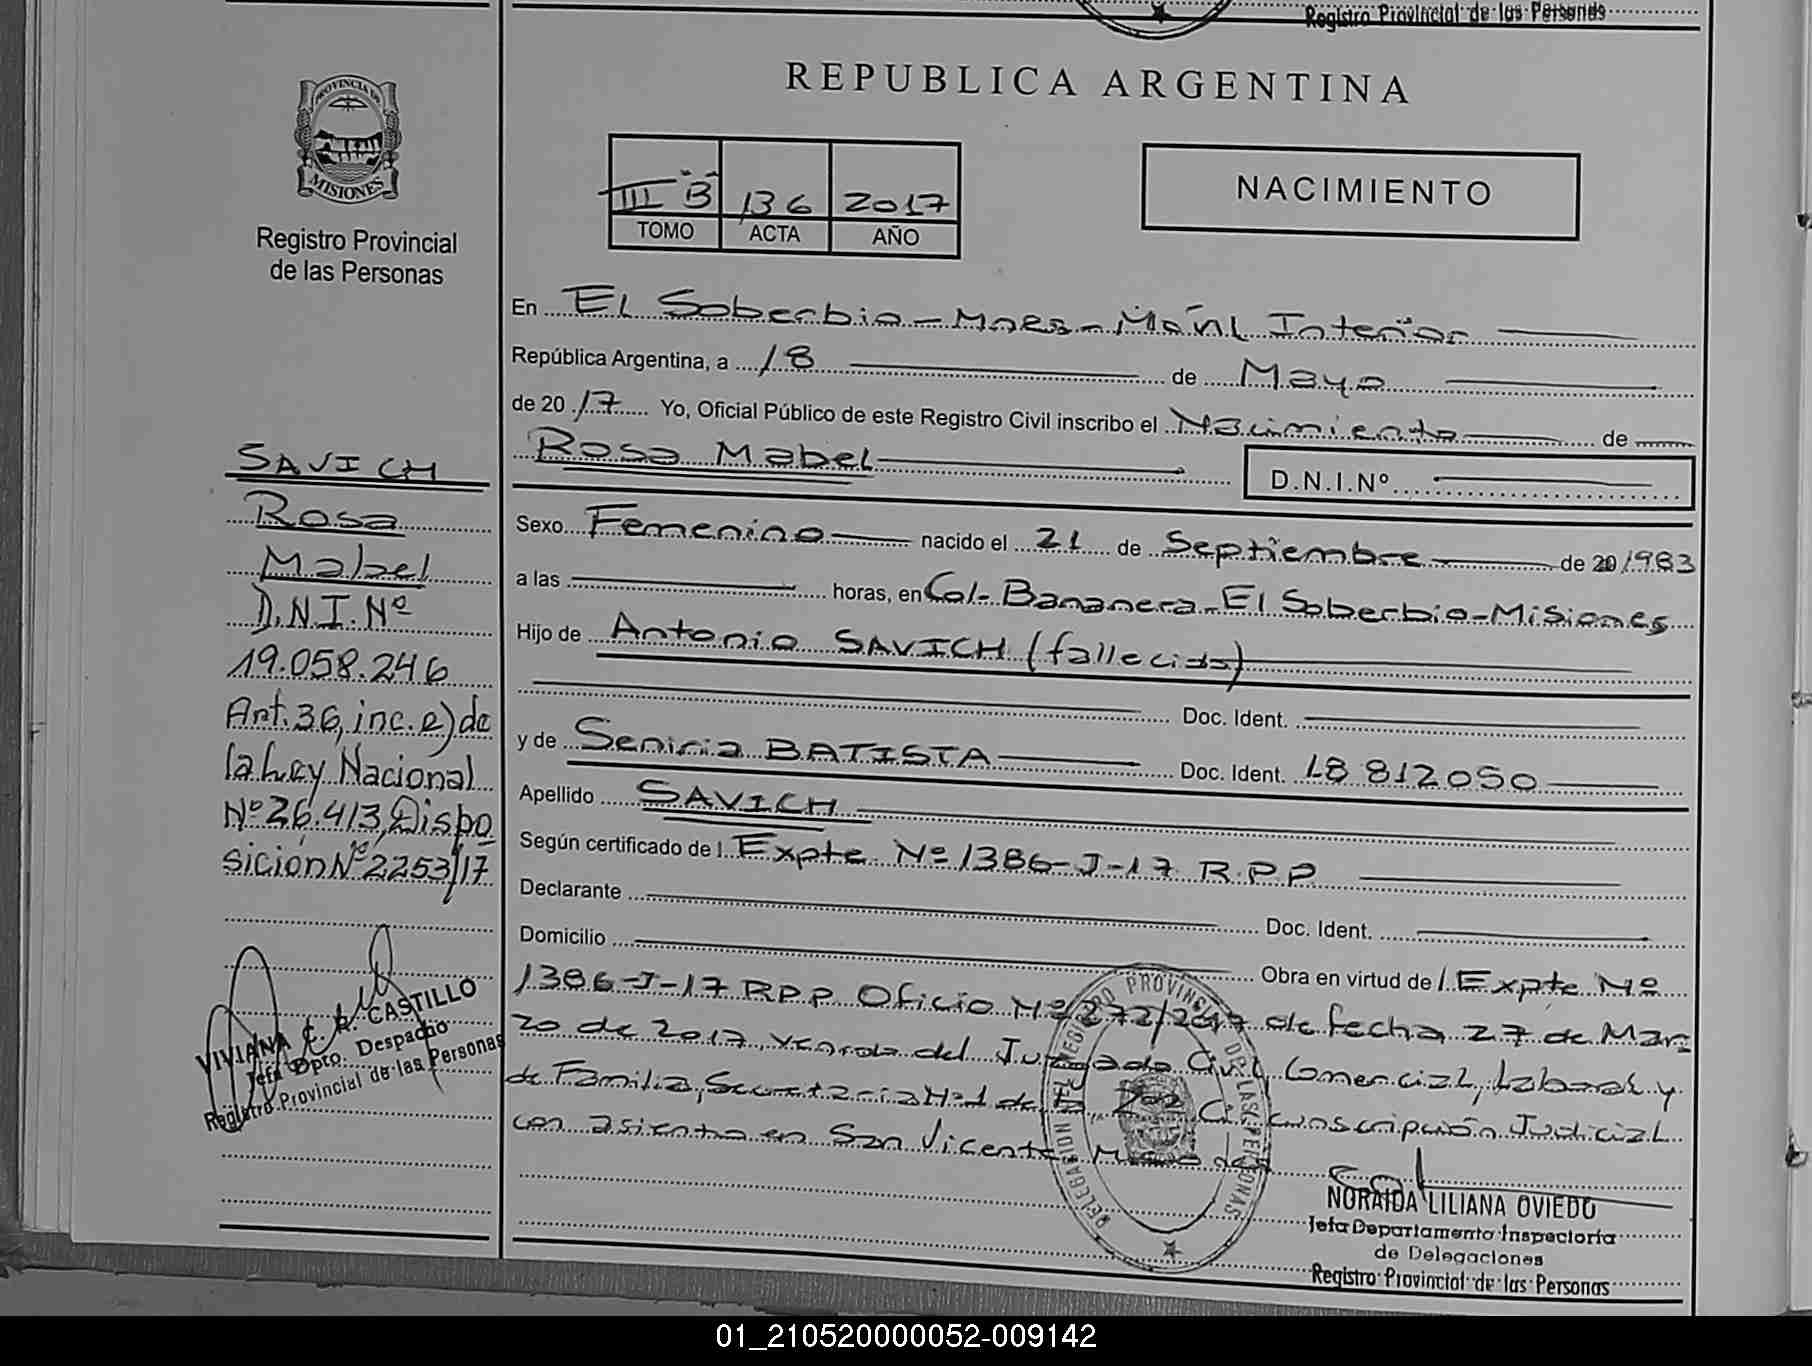 Registro Provincial de las Personas
PROVINCIA DE
MISIONES
Registro Provincial
de las Personas
REPUBLICA ARGENTINA
III "B" 136 2017
TOMO ACTA AÑO
NACIMIENTO
En El Soberbio - Mnes - Móvil Interior
República Argentina, a 18 de Mayo
de 20 17 Yo, Oficial Público de este Registro Civil inscribo el Nacimiento de
Rosa Mabel D.N.I.Nº
Sexo Femenino nacido el 21 de Septiembre de 20 1983
a las horas, en Col. Bananera - El Soberbio - Misiones
Hijo de Antonio SAVICH (fallecido)
Doc. Ident.
y de Seniria BATISTA Doc. Ident. 18 812050
Apellido SAVICH
Según certificado de l Expte Nº 1386-J-17 R.P.P
Declarante Doc. Ident.
Domicilio Obra en virtud de l Expte Nº
1386-J-17 RPP Oficio Nº 272/2017 de fecha 27 de Mar-
zo de 2017, venido del Juzgado Civil, Comercial, Laboral y
de Familia, Secretaria Nº 1 de la 2da Circunscripción Judicial
con asiento en San Vicente Misiones
SAVICH
Rosa
Mabel
D.N.I. Nº
19.058.246
Art. 36, inc. e) de
la Ley Nacional
Nº 26.413, Dispo
sición Nº 2253/17
VIVIANA E. R. CASTILLO
Jefa Dpto. Despacho
Registro Provincial de las Personas
DELEGACION DEL REGISTRO PROVINCIAL DE LAS PERSONAS
NORAIDA LILIANA OVIEDO
Jefa Departamento Inspectoría
de Delegaciones
Registro Provincial de las Personas
01_210520000052-009142